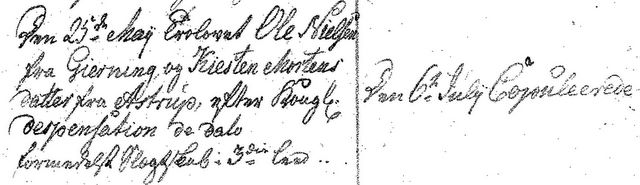 Den 25de May Trolovet Ole Nielsen
fra Gierning, og Kiesten Mortens
datter fra Astrup, efter Kongl.
despensation de dato
formedelst Slagtskab i 3die leed ..
Den 6t July Copuleerede